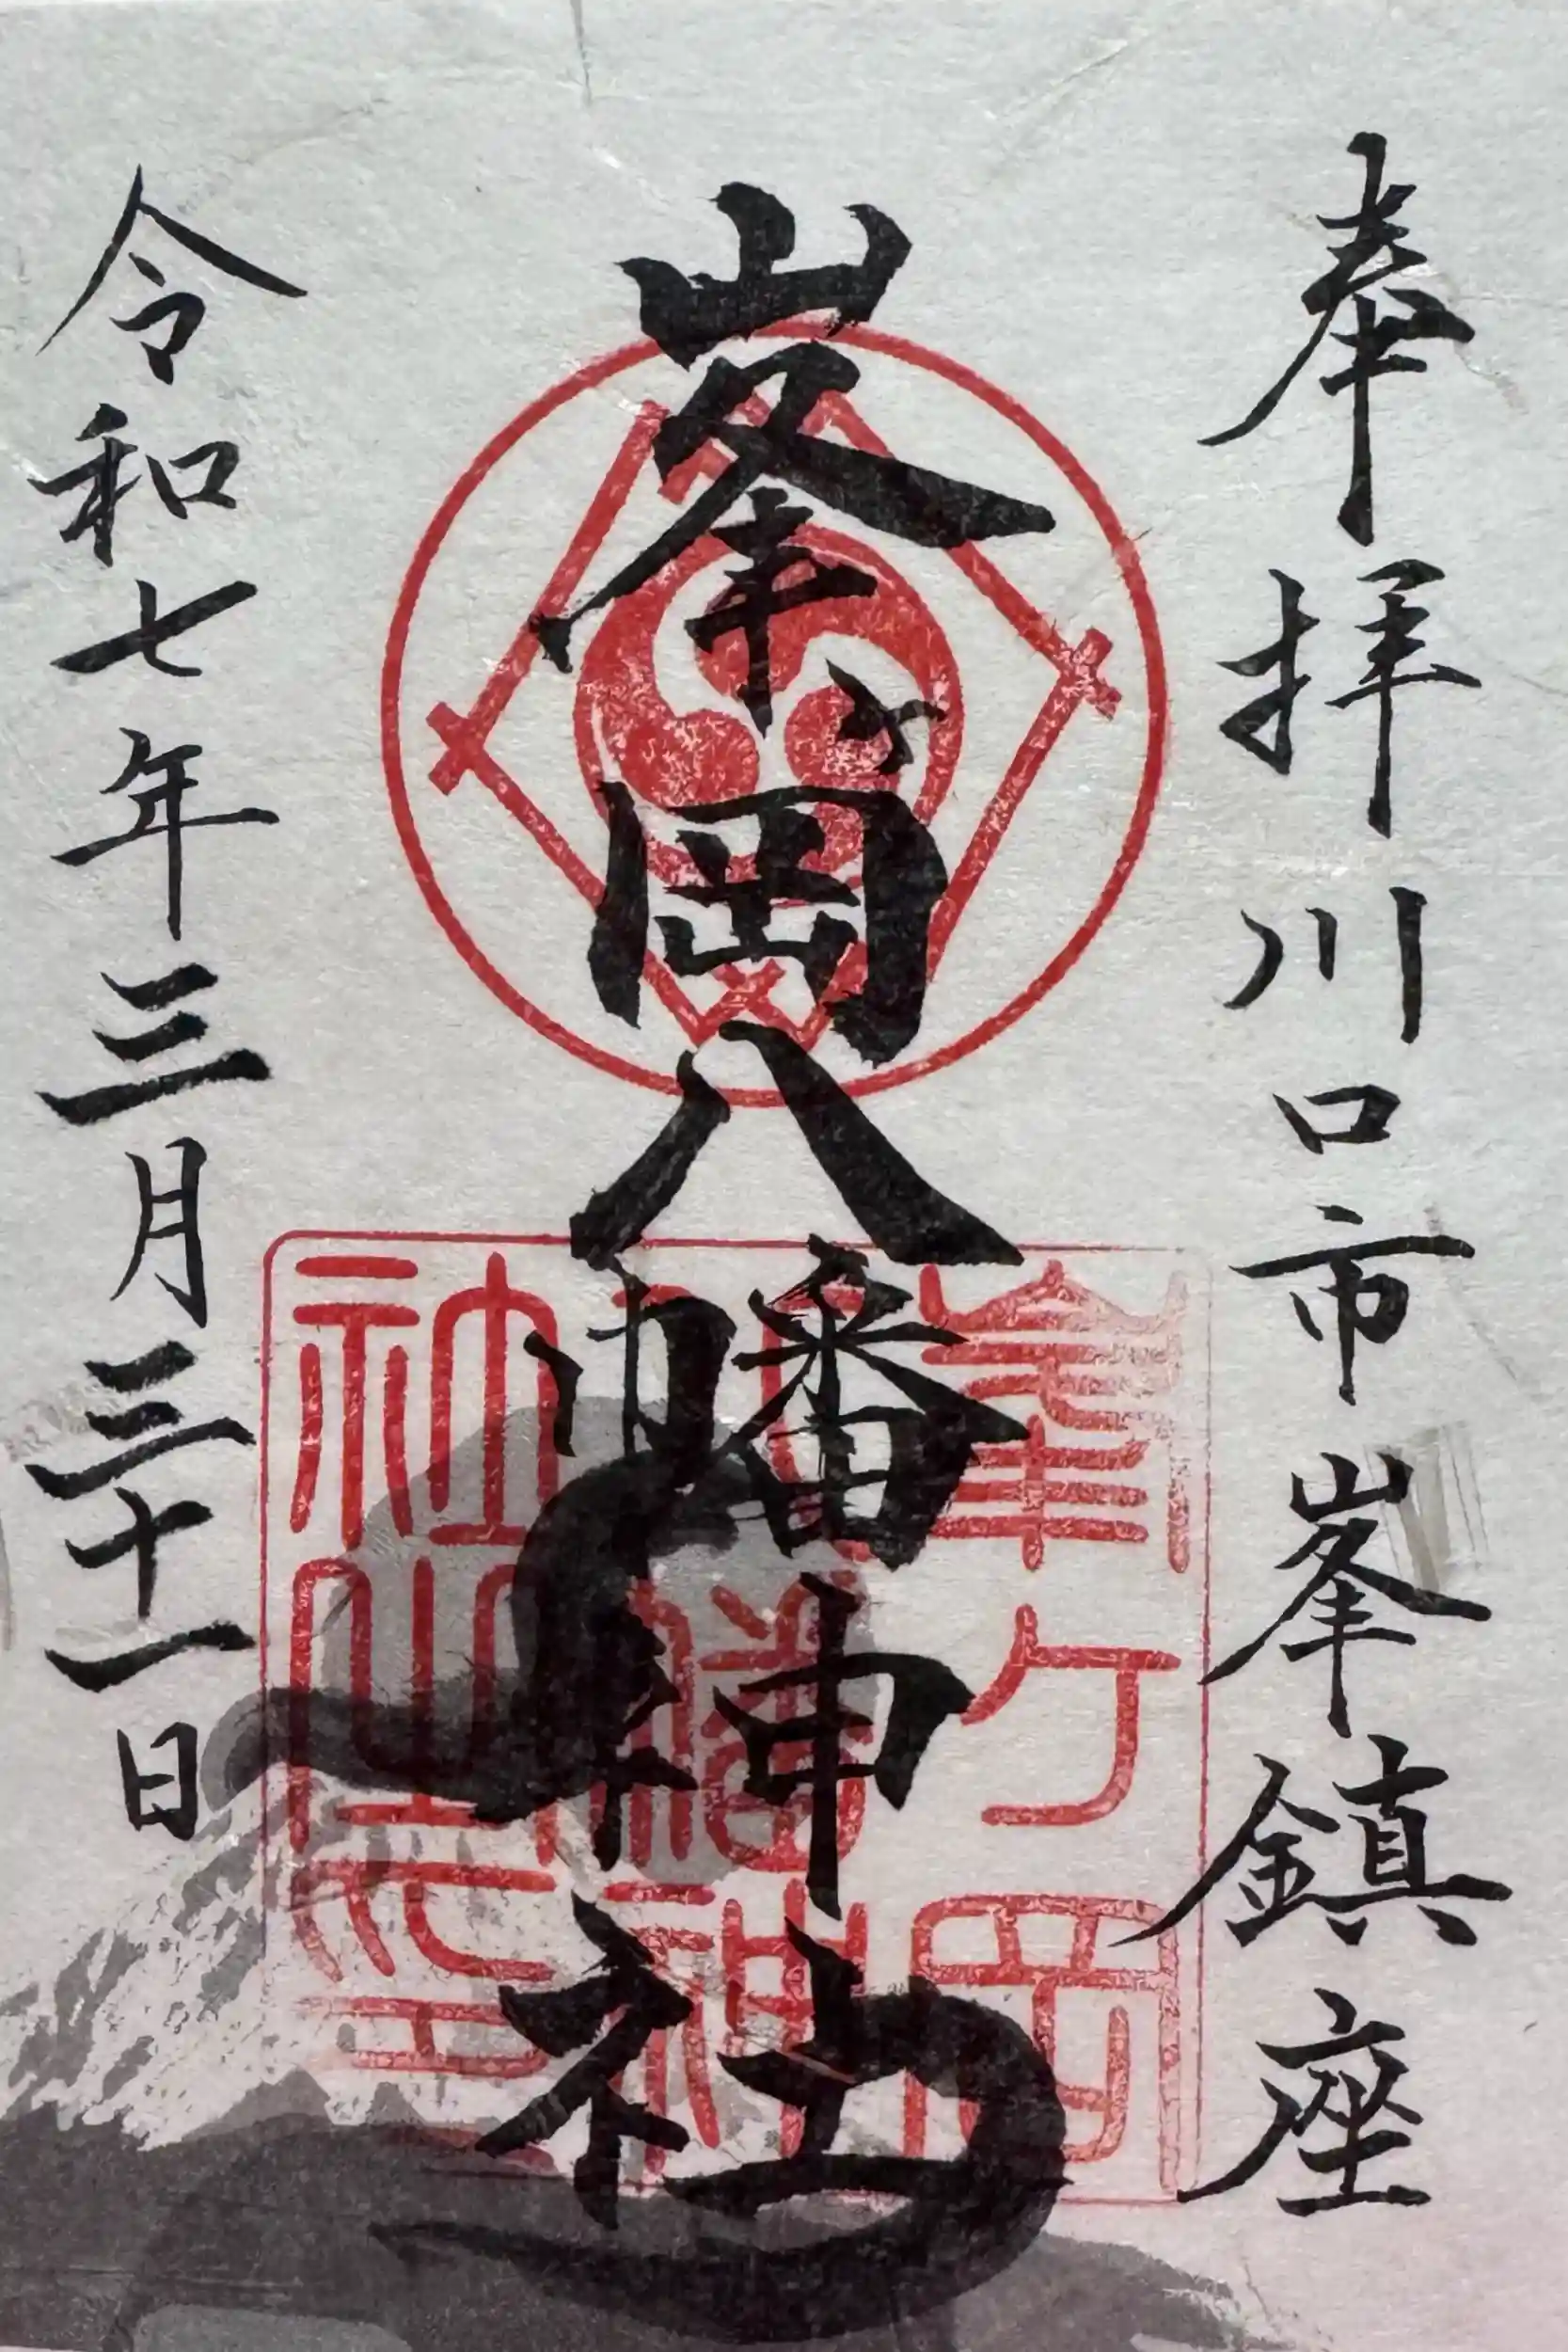 奉拝川口市峯鎮座
峯ヶ岡八幡神社
令和七年三月三十一日
峯ヶ岡
八幡神
社之印